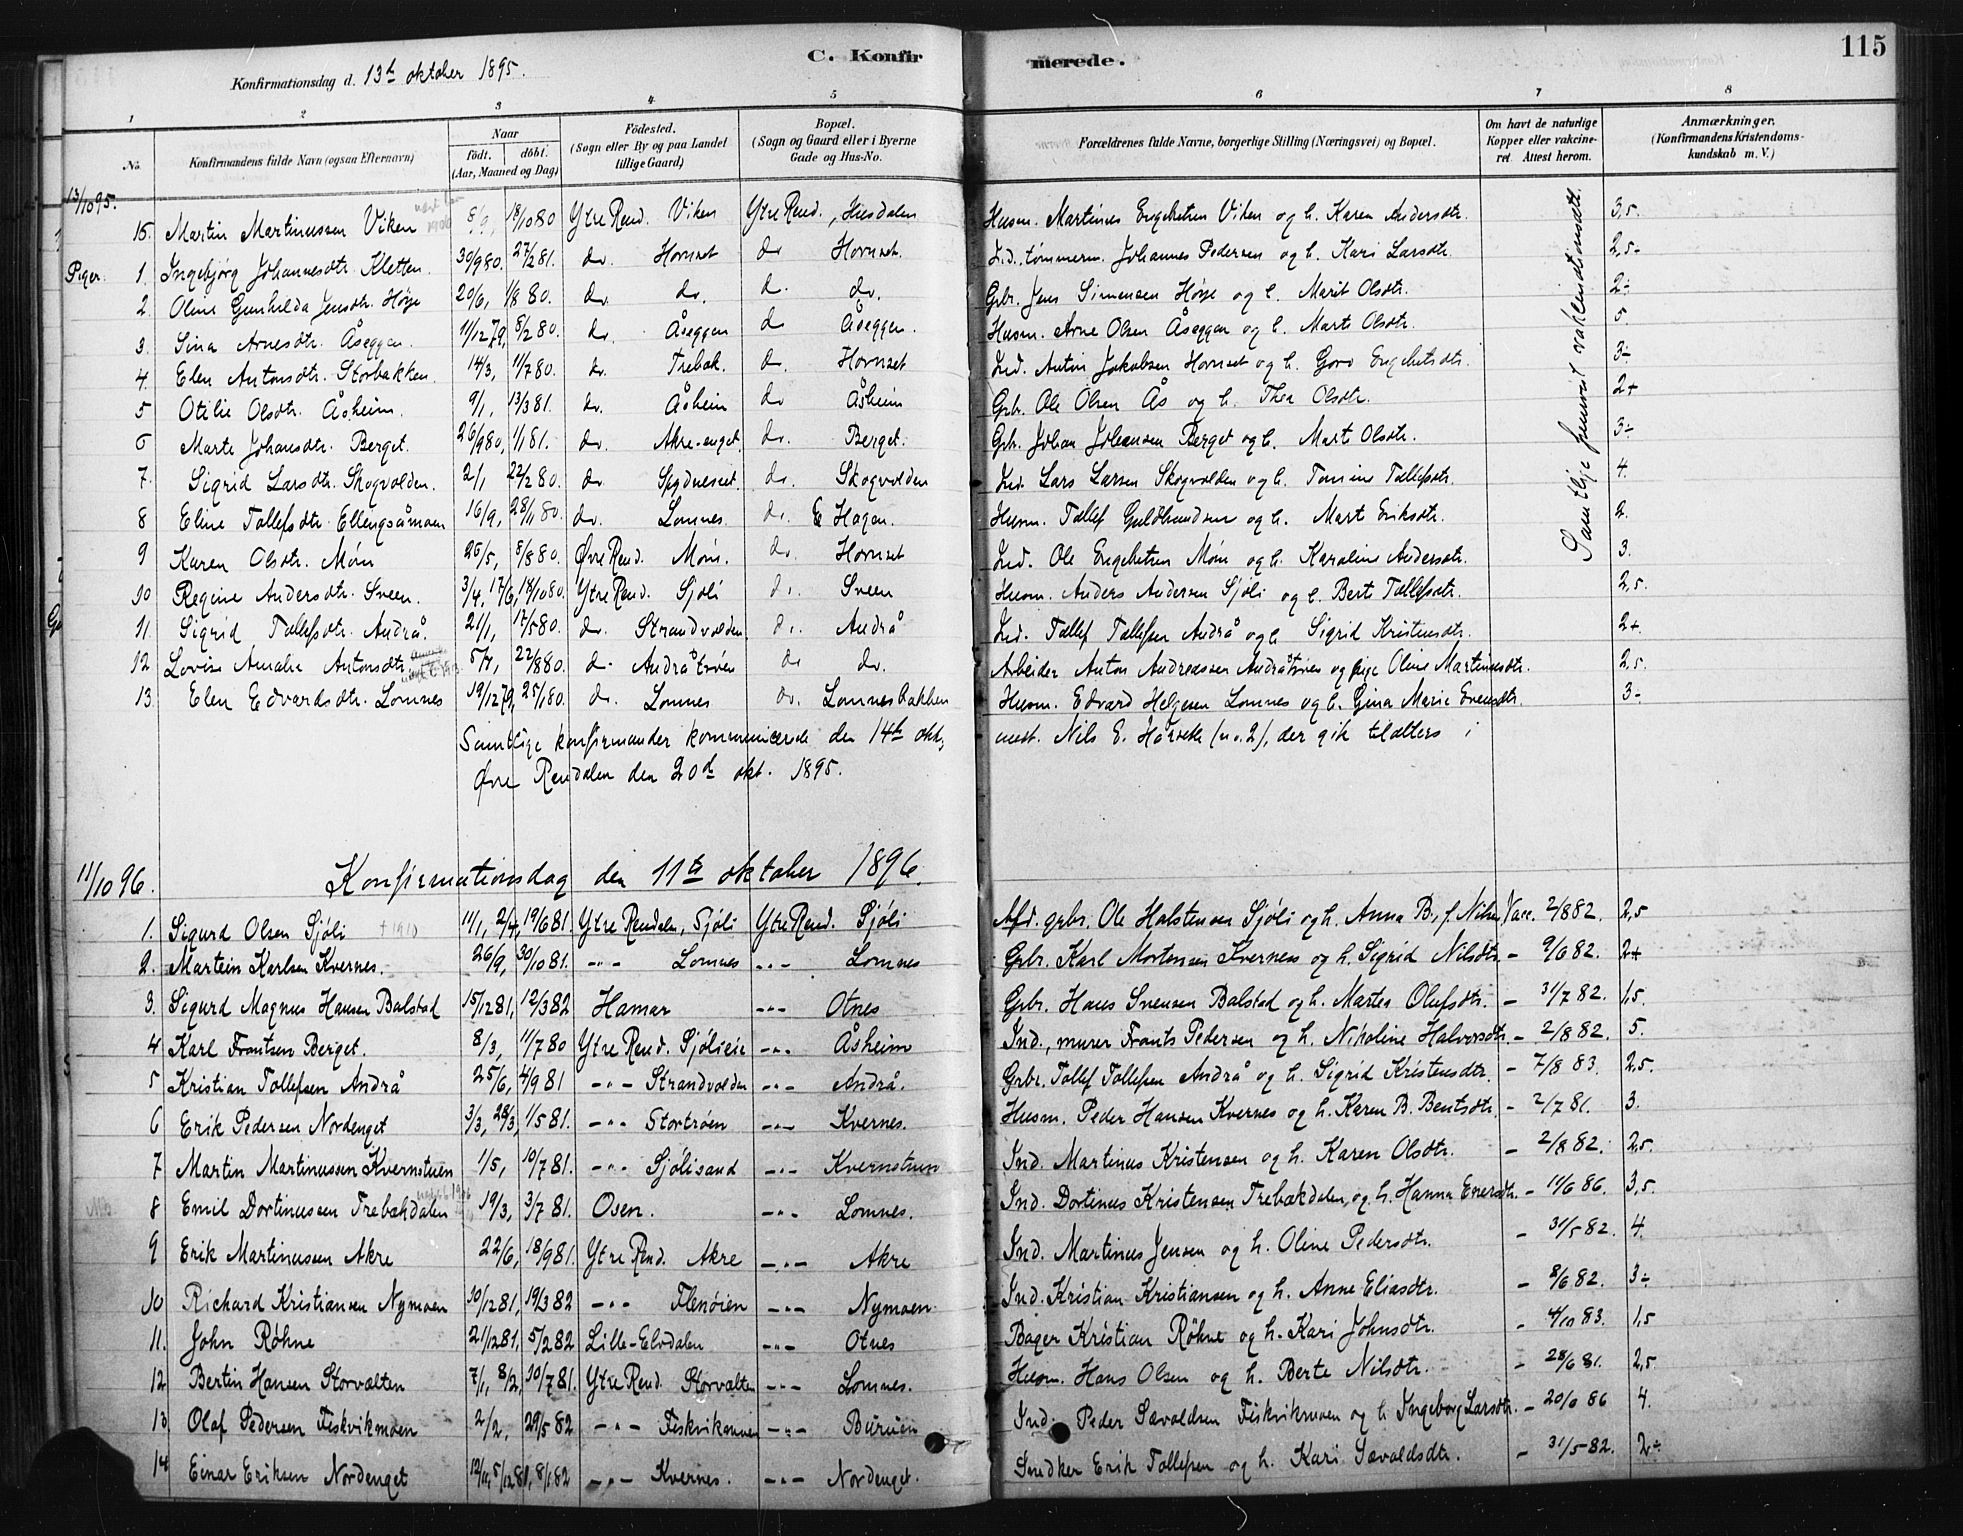 C. Konfirmerede. 115
Konfirmationsdag d. 13de oktober 1895.
1 2 3 4 5 6 7 8
No. Konfirmandens fulde Navn (ogsaa Efternavn) Naar Födt. döbt. (Aar, Maaned og Dag) Födested. (Sogn eller By og paa Landet tillige Gaard) Bopæl. (Sogn og Gaard eller i Byerne Gade og Hus-No. Forældrenes fulde Navne, borgerlige Stilling (Næringsvei) og Bopæl. Om havt de naturlige Kopper eller vakcineret. Attest herom. Anmærkninger, (Konfirmandens Kristendomskundskab m. V.)
13/10 95.
15. Martin Martinussen Viken 8/9, 18/10 80 Ytre Rend. Viken Ytre Rend., Husdalen Husm. Martinus Engebretsen Viken og h. Karen Andersdtr. 3,5.
Piger. 1. Ingebjørg Johannesdtr. Kletten. 30/9 80. 27/2 81. do. Hornset do Hornset. Ind. tømmerm. Johannes Pedersen og h. Kari Larsdtr. 2,5-
2. Oline Gunhilda Jensdtr. Høye 20/6, 1/8 80. do. do. do. do. Gbr. Jens Simensen Høye og h. Marit Olsdtr. 2÷
3. Sina Arnesdtr. Åseggen. 11/12 79, 8/2 80. do. Åseggen do Åseggen. Husm. Arne Olsen Åseggen og h. Marte Olsdtr. 5.
4. Elen Antonsdtr. Storbakken. 14/3, 11/7 80. do. Trebak. do. Hornset Ind. Anton Jakobsen Hornset og h. Goro Engebretsdtr. 3÷
5 Otilie Olsdtr. Åsheim. 9/1, 13/3 81. do. Åsheim do Åsheim Gbr. Ole Olsen Ås og h. Thea Olsdtr. 2+
6 Marte Johansdtr. Berget. 26/9 80, 1/1 81. do. Akre-enget do. Berget. Gbr. Johan Johansen Berget og h. Mart Olsdtr. 3÷
7. Sigrid Larsdtr. Skogvolden. 2/1, 22/2 80. do. Spydneset. do. Skogvolden Ind. Lars Larsen Skogvolden og h. Tomine Tollefsdtr. 4.
8 Eline Tollefsdtr. Ellingsåmoen 16/9, 28/11 80. do. Lomnes. do. E Hagen. Husm. Tollef Guldbrandsen og h. Mart Eriksdtr. 2.
9 Karen Olsdtr. Møm 25/5, 8/8 80. Øvre Rend. Møm. do. Hornset Ind. Ole Engebretsen Møm og h. Karoline Andersdtr. 3.
10 Regine Andersdtr. Sveen. 3/4, 17/6, 18/10 80. Ytre Rend. Sjøli do. Sveen Husm. Anders Andersen Sjøli og h. Berte Tollefsdtr. 2,5.
11. Sigrid Tollefsdtr. Andrå. 21/1, 17/5 80. do. Strandvolden do. Andrå Ind. Tollef Tollefsen Andrå og h. Sigrid Kristensdtr. 2+.
12 Lovise Amalie Antonsdtr. 5/7, 22/8 80. do. Andråtrøen do do. Arbeider Anton Andreassen Andråtrøen og pige Oline Martinusdtr. 2,5.
13. Elen Edvardsdtr. Lomnes 19/12 79, 25/1 80. do. Lomnes do. Lomnesbakken Husm. Edvard Helgesen Lomnes og h. Gina Marie Evensdtr. 3-
Samtlige fremvist vakcinationsattest.
Samtlige konfirmander kommunicerede den 14de okt, undt. Nils E. Horsetk (no. 2), der gik tilalters i
Øvre Rendalen den 20de okt. 1895.
11/10 96. Konfirmationsdag den 11te oktober 1896.
1. Sigurd Olsen Sjøli † 1910 11/1, 2/4, 19/6 81. Ytre Rendalen, Sjøli Ytre Rend. Sjøli Afd. gbr. Ole Halstensen Sjøli og h. Anna B., f. Nilsen Vacc. 2/8 82. 2,5
2. Martein Karlsen Kvernes. 26/9, 30/10 81. -"- Lomnes -"- Lomnes Gbr. Karl Mortensen Kvernes og h. Sigrid Nilsdtr. - 9/6 82. 2+
3. Sigurd Magnus Hansen Balstad 15/12 81, 12/3 82 Hamar -"- Otnes Gbr. Hans Svensen Balstad og h. Martea Olufsdtr. - 31/7 82. 1,5.
4 Karl Frantsen Berget. 8/3, 11/7 80 Ytre Rend. Sjølieie -"- Åsheim Ind., murer Frants Pedersen og h. Nikoline Halvorsdtr. - 2/8 82. 5.
5 Kristian Tollefsen Andrå 25/6, 4/9 81 -"- Strandvolden -"- Andrå. Gbr. Tollef Tollefsen Andrå og h. Sigrid Kristensdtr. - 7/8 83. 2,5.
6 Erik Pedersen Nordenget 3/3, 28/3, 1/5 81. -"- Stortrøen -"- Kvernes. Husm. Peder Hansen Kvernes og h. Karen B. Bentsdtr. - 2/7 81. 3.
7 Martin Martinussen Kvernstuen 1/5, 10/7 81. -"- Sjølisand -"- Kvernstuen Ind. Martinus Kristensen og h. Karen Olsdtr. - 2/8 82. 2,5.
8 Emil Dortinussen Trebakdalen 19/3, 3/7 81. Osen. -"- Lomnes. Ind. Dortinus Kristensen Trebækdalen, og h. Hanna Enersdtr. - 11/6 86. 3,5.
9 Erik Martinussen Akre 22/6, 18/9 81. Ytre Rend. Akre -"- Akre Ind. Martinus Jensen og h. Oline Pedersdtr. - 31/5 82. 4.
10 Richard Kristiansen Nymoen 10/12 81, 19/3 82 -"- Flenøien -"- Nymoen Ind. Kristian Kristiansen og h. Anne Eliasdtr. - 8/6 82. 3÷
11. John Røhne 21/12 81, 5/2 82 Lille-Elvdalen -"- Otnes Bager Kristian Röhne og h. Kari Johnsdtr. - 4/10 83. 1,5
12 Bertin Hansen Storvælten 7/1, 8/2, 10/7 81. Ytre Rend. Storvælten -"- Lomnes. Husm. Hans Olsen og h. Berte Nilsdtr. - 28/6 81. 2,5.
13 Olaf Pedersen Fiskvikmoen 2/2, 29/5 82 -"- Fiskvikmoen -"- Buruen Ind. Peder Sævoldsen Fiskvikmoen og h. Ingeborg Larsdtr. - 20/6 86 4.
14 Einar Eriksen Nordenget 12/11, 5/12 81, 8/1 82 -"- Kvernes. -"- Nordenget. Snedker Erik Tollefsen og h. Kari Sævoldsdtr. - 31/5 82. 2÷